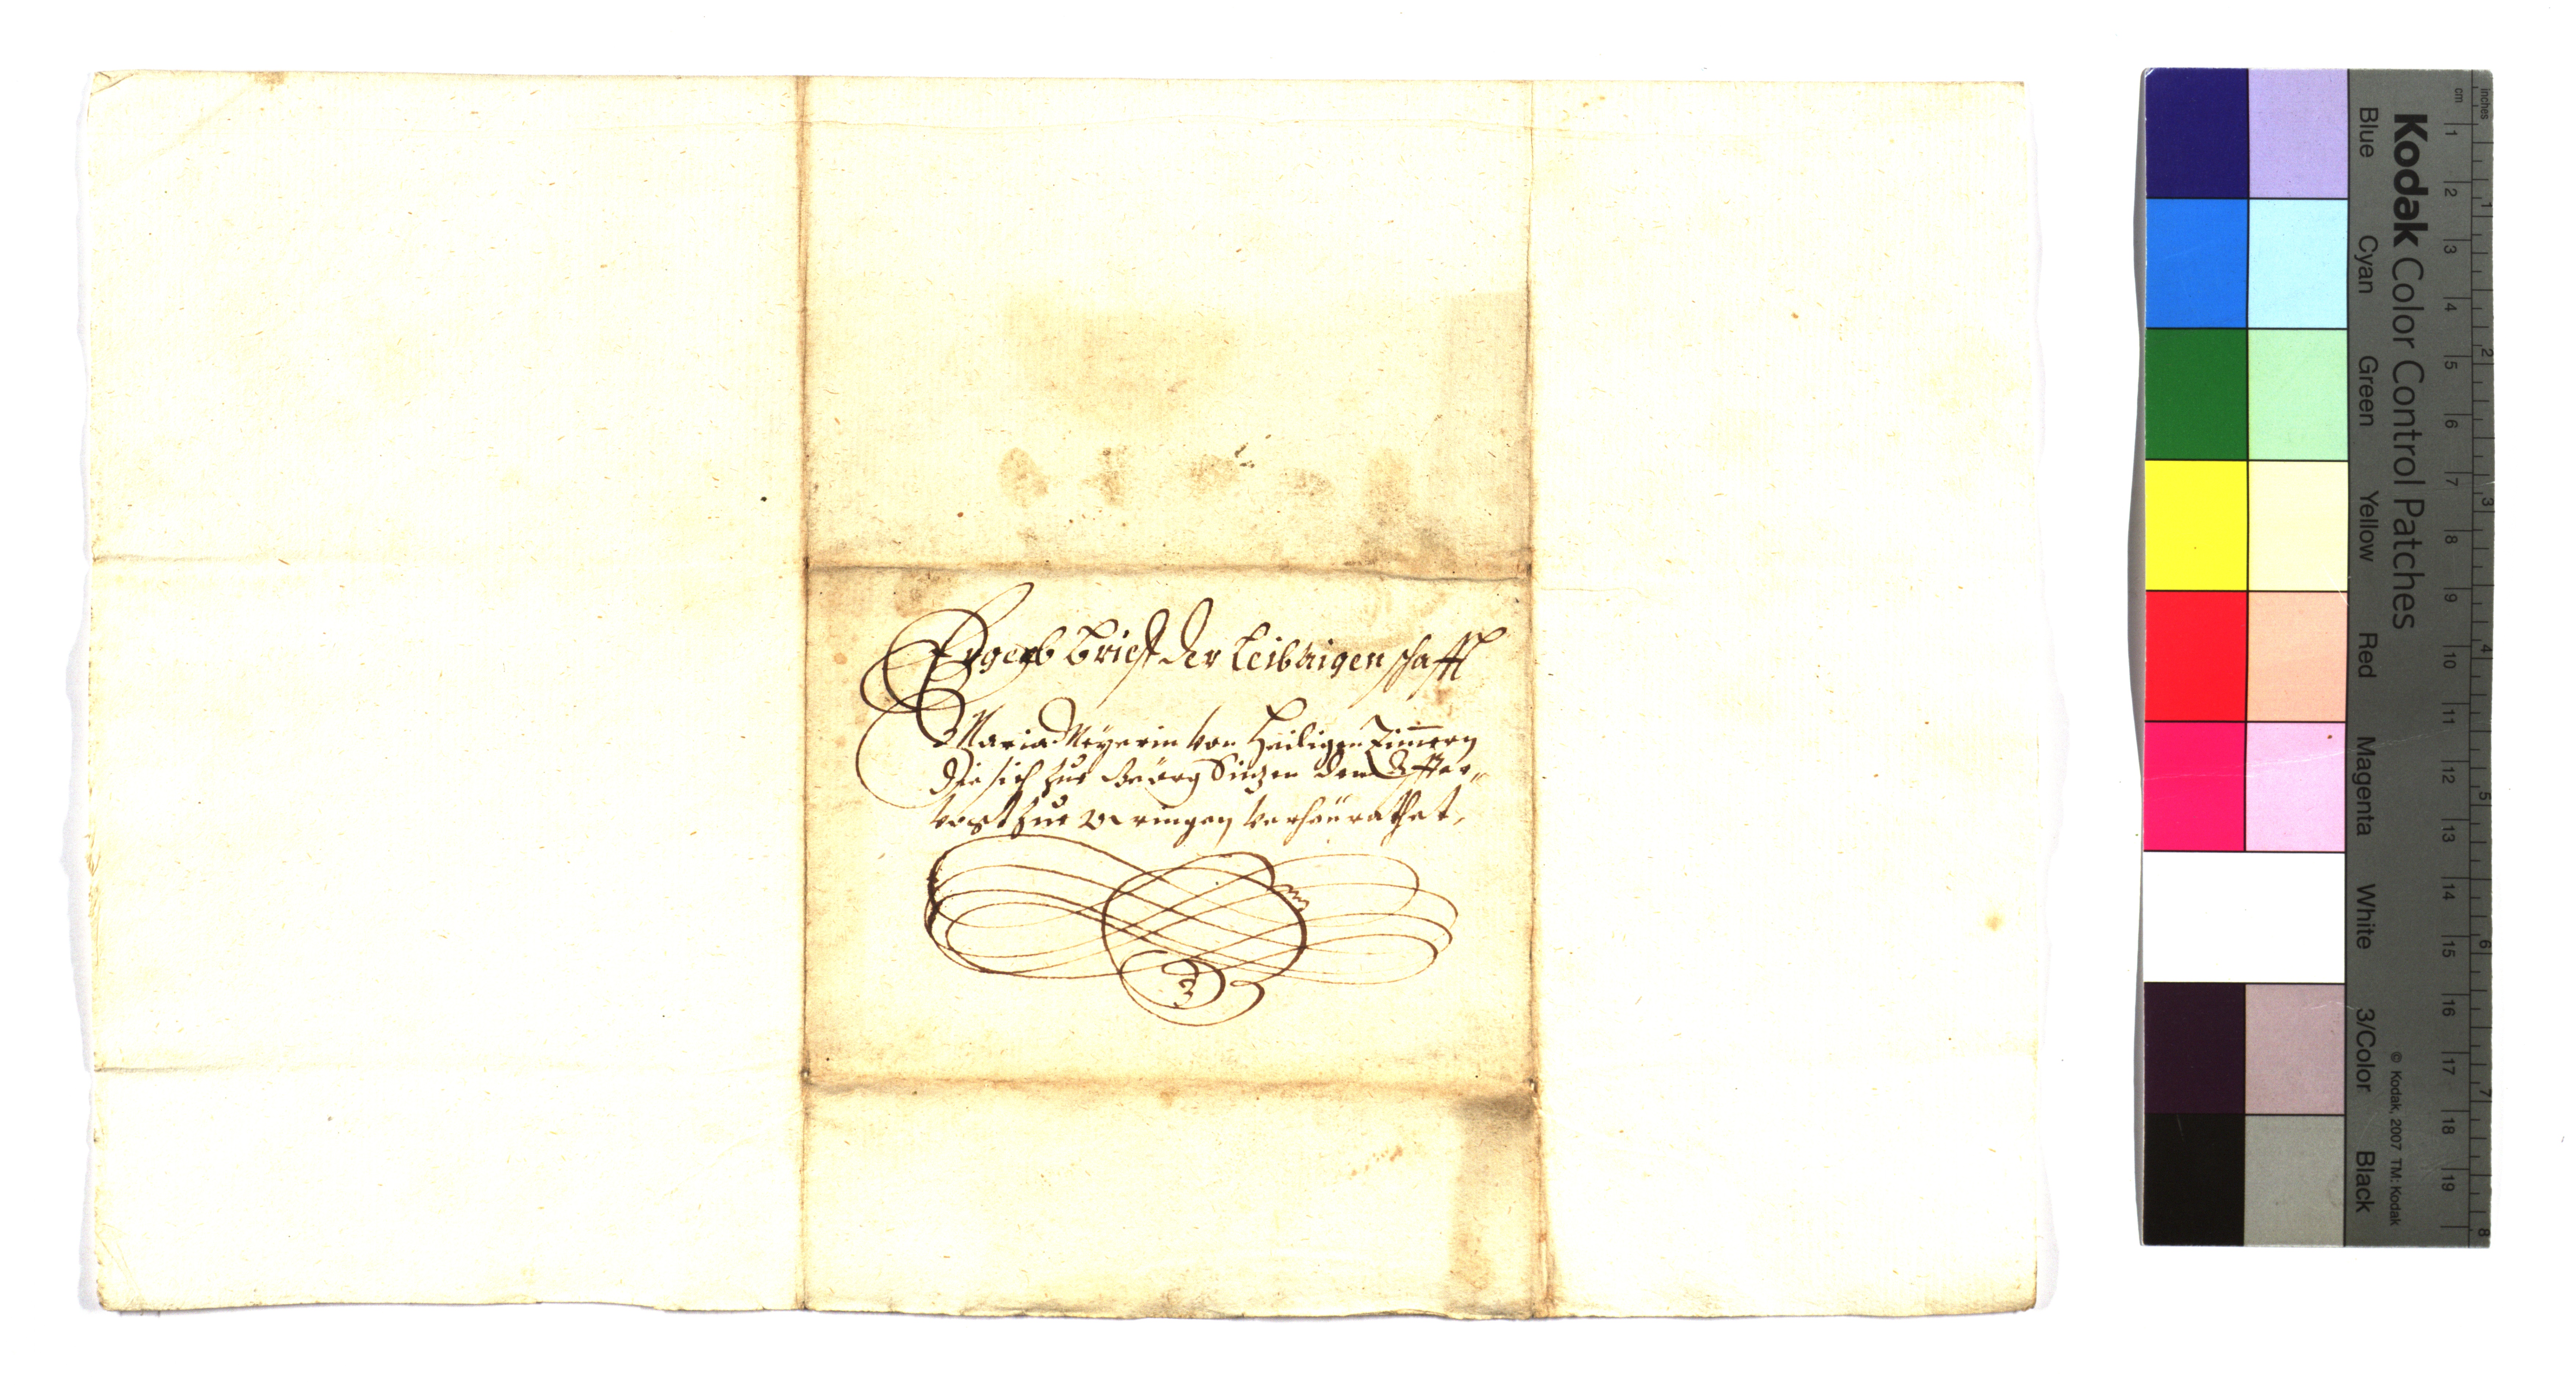 Ergeb brieff der Leibaigenschafft
Maria Meÿerin von Heiligen Zimmern
die sich zue Geörg dem
vogt zue Veringen verheürathet,
Kodak Color Control Patches
© Kodak, 2007 TM: Kodak
Blue Cyan Green Yellow Red Magenta White 3/Color Black
cm 1 2 3 4 5 6 7 8 9 10 11 12 13 14 15 16 17 18 19
inches 1 2 3 4 5 6 7 8